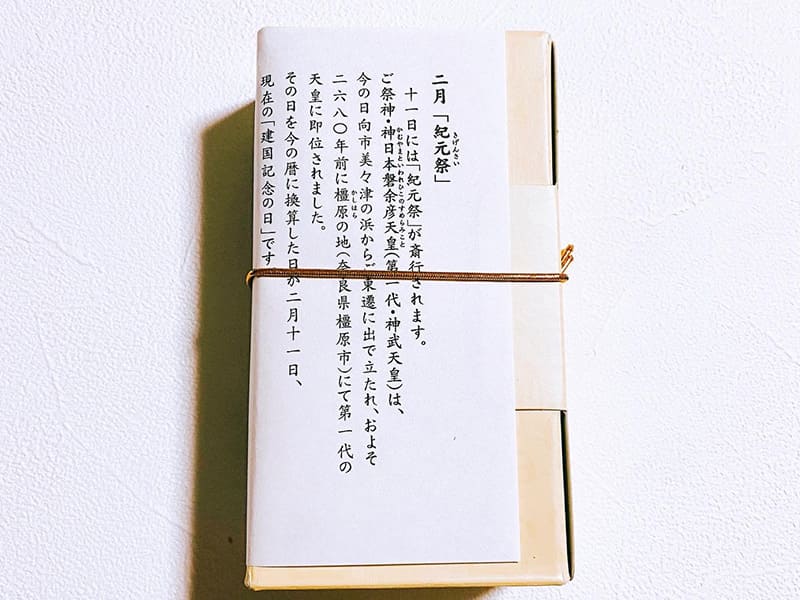 二月「紀元祭」
十一日には「紀元祭」が斎行されます。
ご祭神・神日本磐余彦天皇(第一代・神武天皇)は、
今の日向市美々津の浜からご東遷に出で立たれ、およそ
二六八〇年前に橿原の地(奈良県橿原市)にて第一代の
天皇に即位されました。
その日を今の暦に換算した日が二月十一日、
現在の「建国記念の日」です
きげんさい
かむやまといわれひこのすめらみこと
かしはら